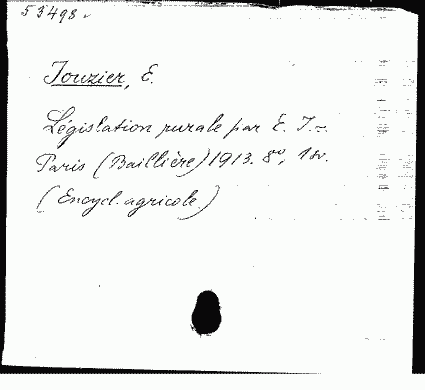 53498.
Jouzier, E.
Législation rurale par E. J.-.
Paris (Baillière) 1913. 8°, 1 v.
(Encycl. agricole.)